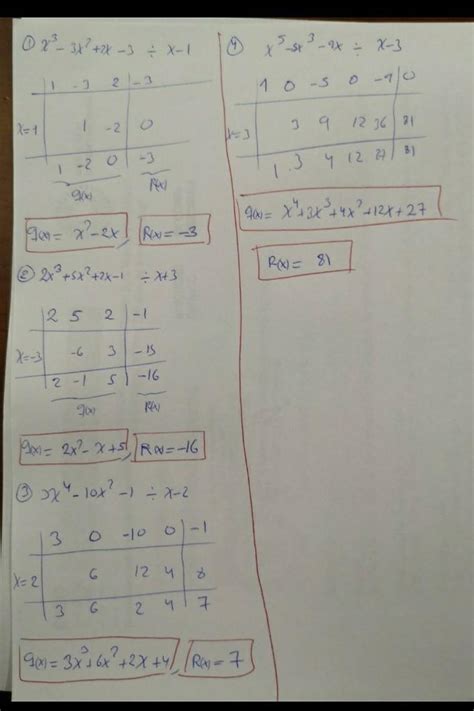 ① x³ - 3x² + 2x - 3 ÷ x-1
1 -3 2 -3
x=1 1 -2 0
1 -2 0 -3
q(x) R(x)
q(x) = x² - 2x, R(x) = -3
② 2x³ + 5x² + 2x - 1 ÷ x+3
2 5 2 -1
x=-3 -6 3 -15
2 -1 5 -16
q(x) R(x)
q(x) = 2x² - x + 5, R(x) = -16
③ 3x⁴ - 10x² - 1 ÷ x-2
3 0 -10 0 -1
x=2 6 12 4 8
3 6 2 4 7
q(x) = 3x³ + 6x² + 2x + 4, R(x) = 7
x⁵ - 5x³ - 9x ÷ x-3
1 0 -5 0 -9 0
x=3 3 9 12 36 81
1 3 4 12 27 81
q(x) = x⁴ + 3x³ + 4x² + 12x + 27
R(x) = 81